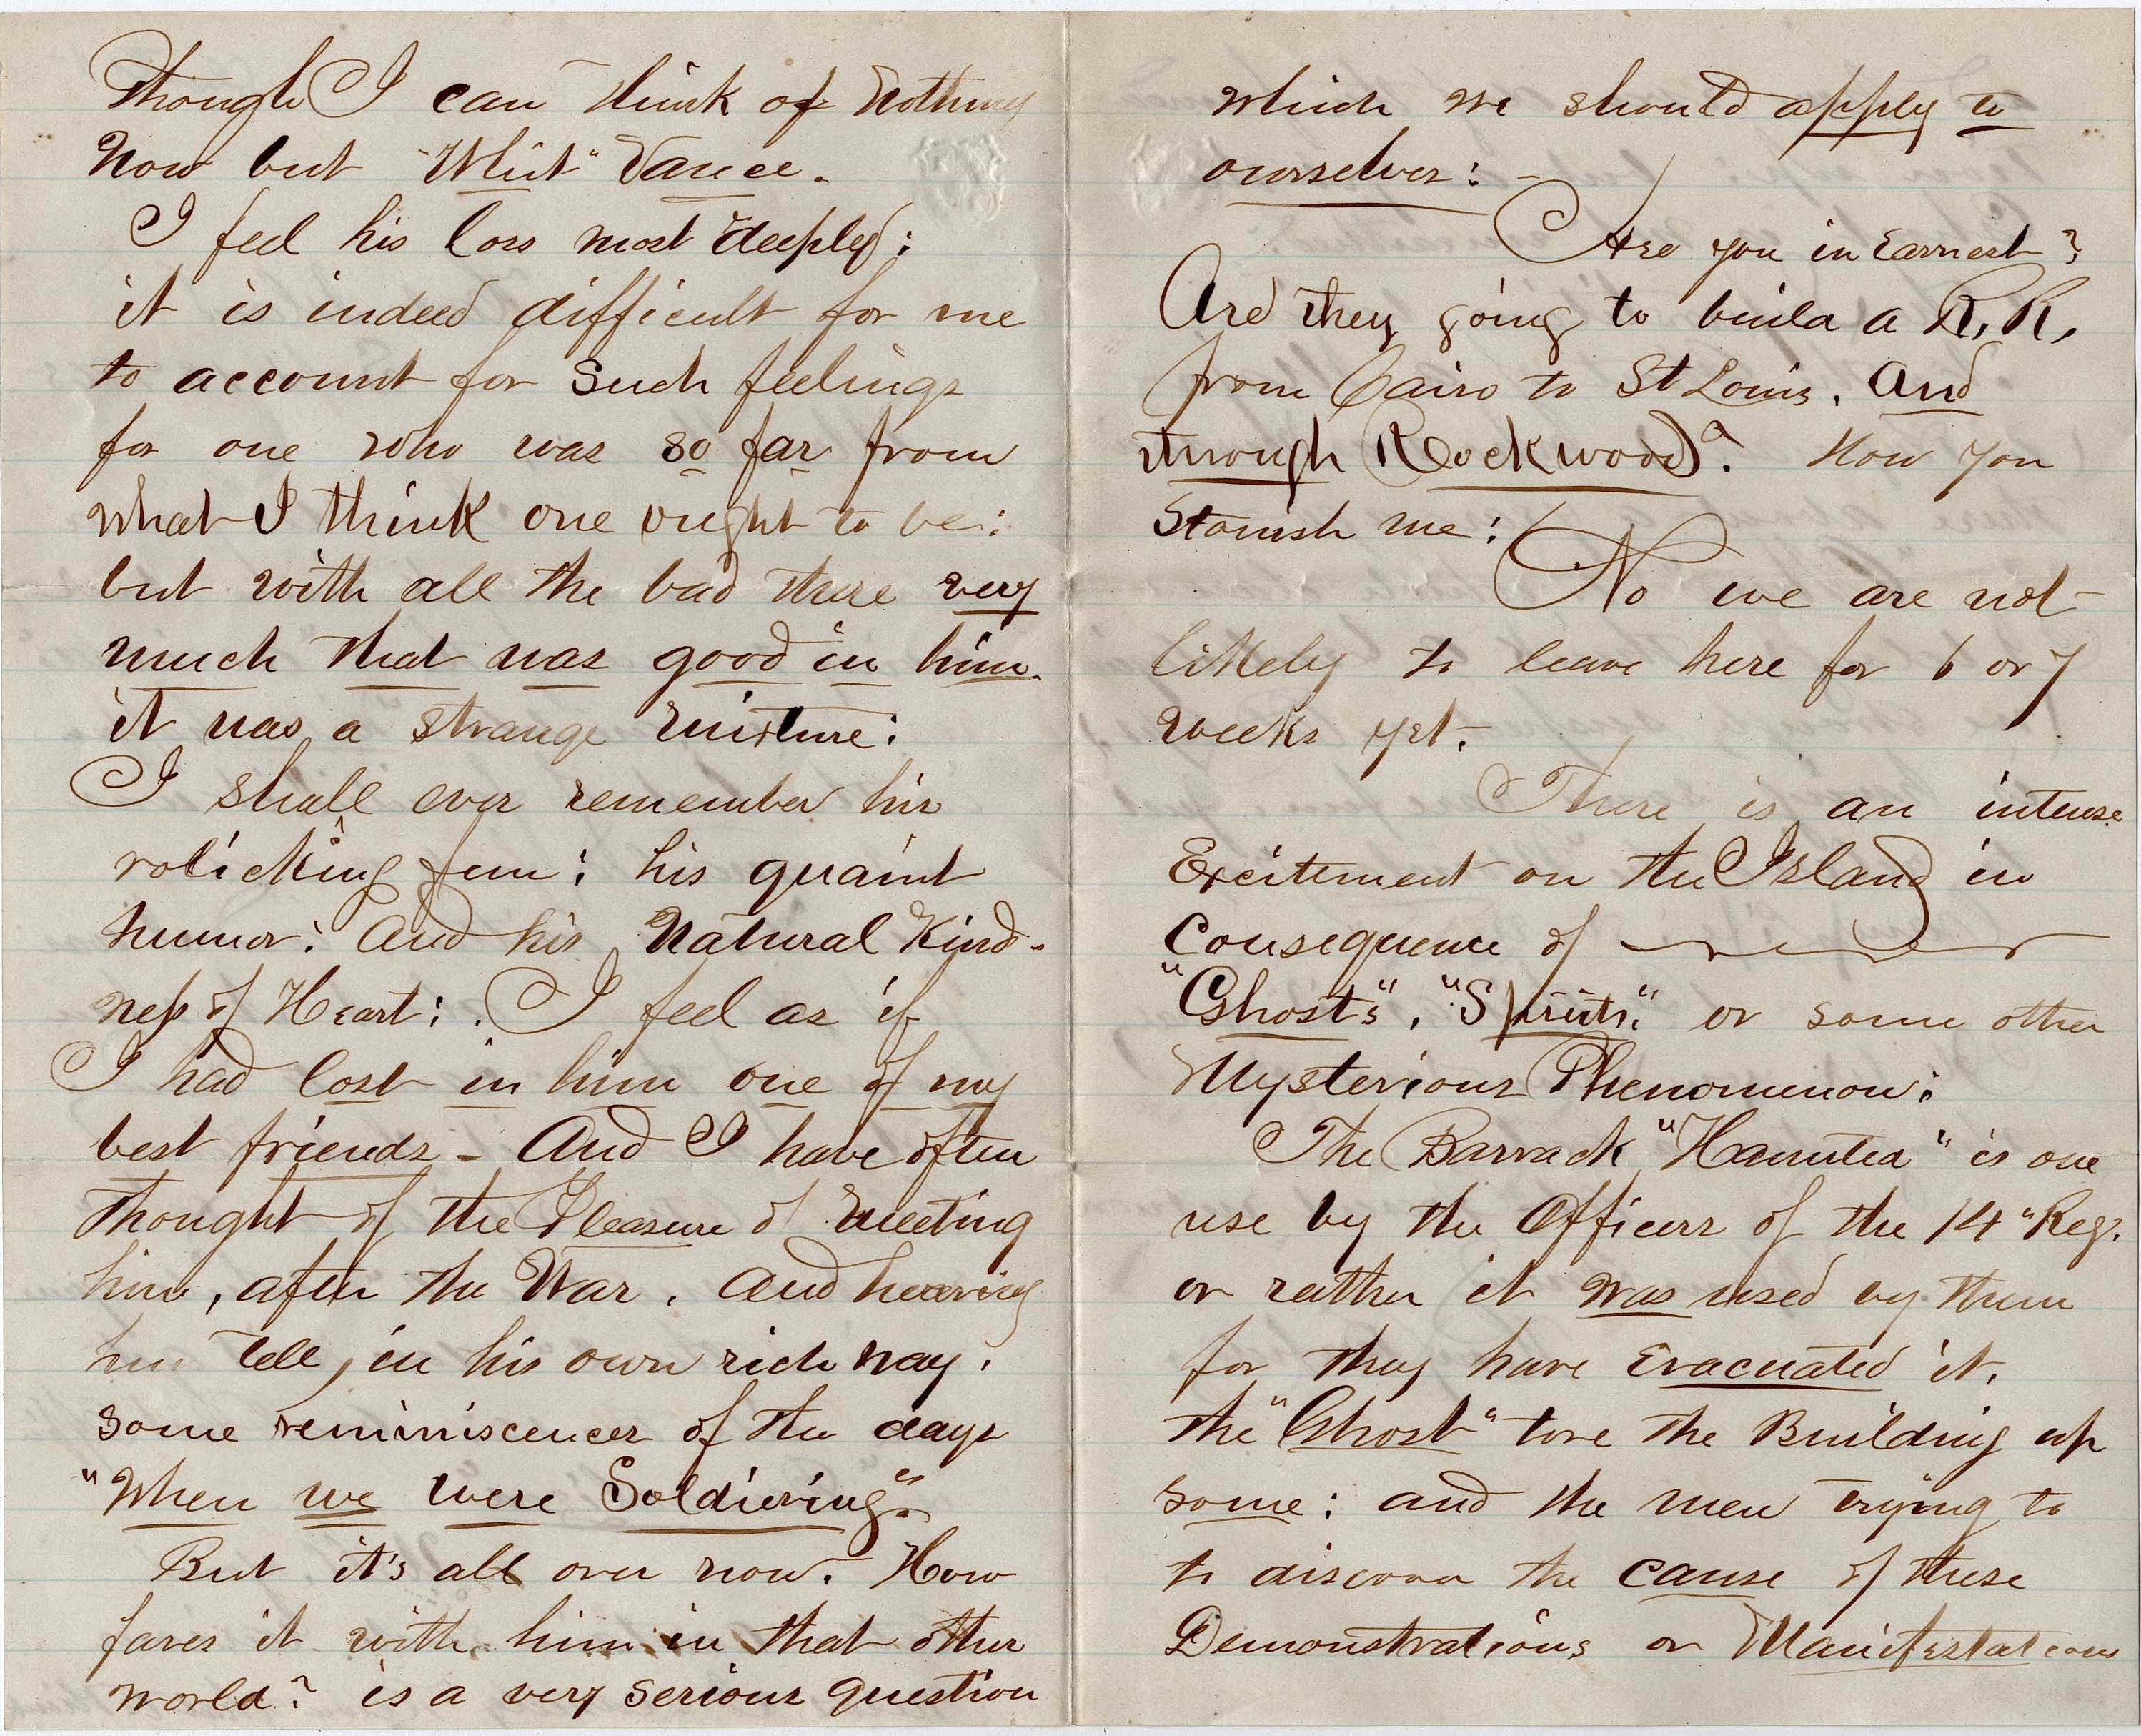 Though I can think of Nothing
Now but "Whit" Vance.
I feel his loss most deeply:
it is indeed difficult for me
to account for such feelings
for one who was so far from
what I think one ought to be:
but with all the bad there very
much that was good in him.
it was a strange mixture:
I shall ever remember his
rolicking fun; his quaint
humor: And his Natural Kind-
ness of Heart: I feel as if
I had lost in him one of my
best friends - And I have often
thought of the Pleasure of meeting
him, after the War. And hearing
him tell, in his own rich way,
some reminiscences of the days
"When we were Soldiering".
But it's all over now. How
fares it with him in that other
world? is a very serious question
which we should apply to
ourselves: -
Are you in Earnest?
Are they going to build a R, R,
from Cairo to St Louis. And
through Rockwood? How you
Stonish me!
No we are not
likely to leave here for 6 or 7
weeks yet.
There is an intense
Excitement on the Island in
Consequence of
"Ghosts", "Spirits" or some other
Mysterious Phenomenon:
The Barrack "Haunted" is one
use by the Officers of the 14" Reg.
or rather it was used by them
for they have Evacuated it,
the "Ghost" tore the Building up
some: and the men trying to
to discover the cause of these
Demonstrations or Manifestations